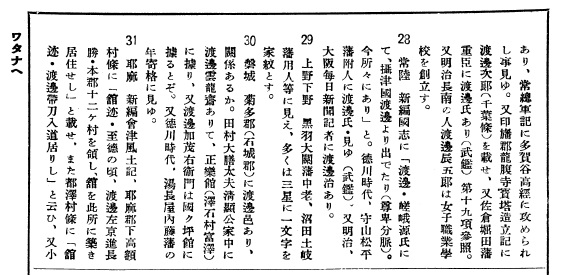 あり、常總軍記に多賀谷高經に攻められ
し事見ゆ。又印旛郡龍腹寺寶塔造立記に
渡邊次郎(千葉條)を載せ、又佐倉堀田藩
重臣に渡邊氏あり(武鑑)。第十九項參照。
又明治長南の人渡邊辰五郎は女子職業學
校を創立す。
28 常陸 新編國志に「渡邊・嵯峨源氏に
て、攝津國渡邊より出でたり(尊卑分脈)。
今所々にあり」と。德川時代、守山松平
藩附人に渡邊氏・見ゆ(武鑑)。又明治、
大阪每日新聞記者に渡邊治あり。
29 上野下野 黑羽大關藩中老、沼田土岐
藩用人等に見え、多くは三星に一文字を
家紋とす。
30 磐城 菊多郡(石城郡)に渡邊邑あり、
關係あるか。田村大膳太夫淸顯公家中に
渡邊雲龍齋ありて、正樂館(澤石村富澤)
に據り、又渡邊加茂右衞門は國ク坪館に
據るとぞ。又德川時代、湯長屋內藤藩の
年寄格に見ゆ。
31 耶麻 新編會津風土記、耶麻郡下高額
村條に「館迹・至德の頃、渡邊左京進長
勝・本郡十二ヶ村を領し、館を此所に築き
居住せし」と載せ、また都澤村條に「館
迹・渡邊帶刀入道居りし」と云ひ、又小
ワタナヘ